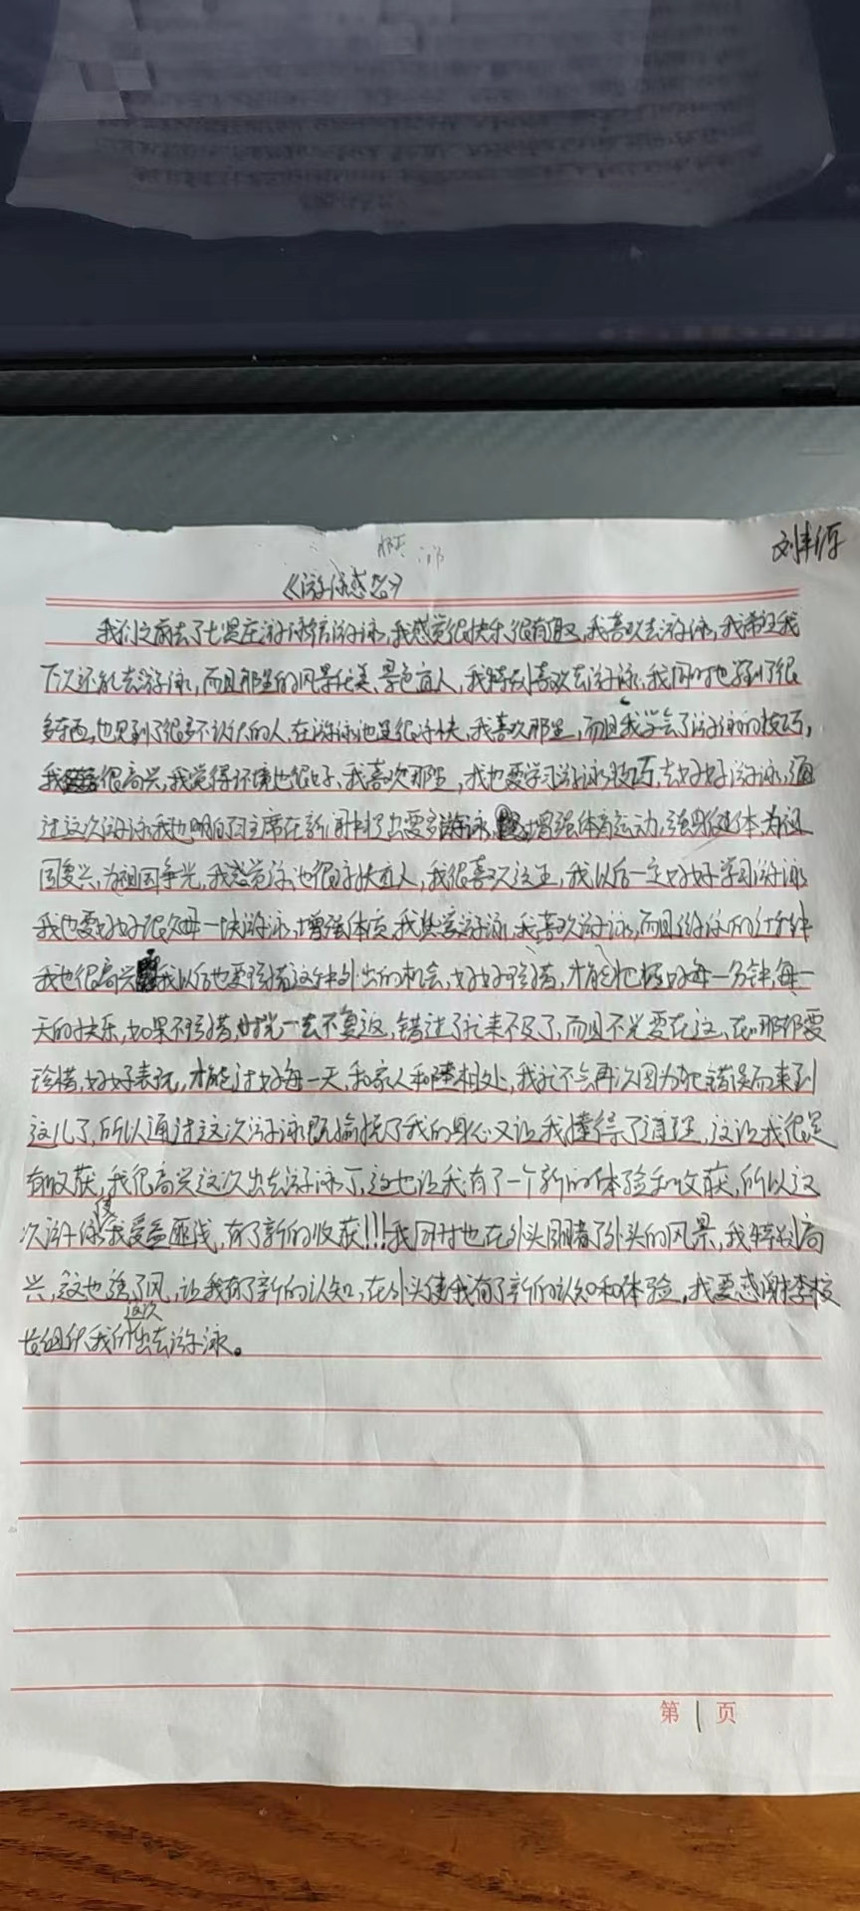 刘丰源
《游泳感念》
我们之前去了七贤庄游泳馆游泳,我感觉很快乐很有趣,我喜欢去游泳,我希望我
下次还能去游泳,而且那里的风景优美、景色宜人,我特别喜欢去游泳,我同时也学到了很
多东西,也见到了很多不认识的人,在游泳池里很凉快,我喜欢那里,而且我学会了游泳的技巧,
我很高兴,我觉得环境也很好、我喜欢那里,我也要学习游泳技巧,去好好游泳,通
过这次游泳我也明白主席在新时提出要多游泳,增强体育运动,强身健体,为祖
国复兴,为祖国争光,我感觉泳池很凉快宜人,我很喜欢这里,我以后一定好好学习游泳
我也要好好很次每一块游泳,增强体质,我热爱游泳,我喜欢游泳,而且游泳的过程
我也很高兴我以后也要珍惜这种外出的机会,好好珍惜,才能把握好每一分钟,每一
天的快乐,如果不珍惜,时光一去不复返,错过了就来不及了,而且不光要在这,在哪都要
珍惜,好好表现,才能过好每一天,和家人和睦相处,我就不会再次因为犯错误而来到
这儿了,所以通过这次游泳既愉悦了我的身心又让我懂得了道理,这让我很是
有收获,我很高兴这次出去游泳了,这也让我有了一个新的体验和收获,所以这
次游泳使我受益匪浅,有了新的收获!!!我同时也在外头目睹了外头的风景,我特别高
兴,这也让我有了新的认知,在外头使我有了新的认知和体验,我要感谢李校
长组织我们这次出去游泳。
第1页